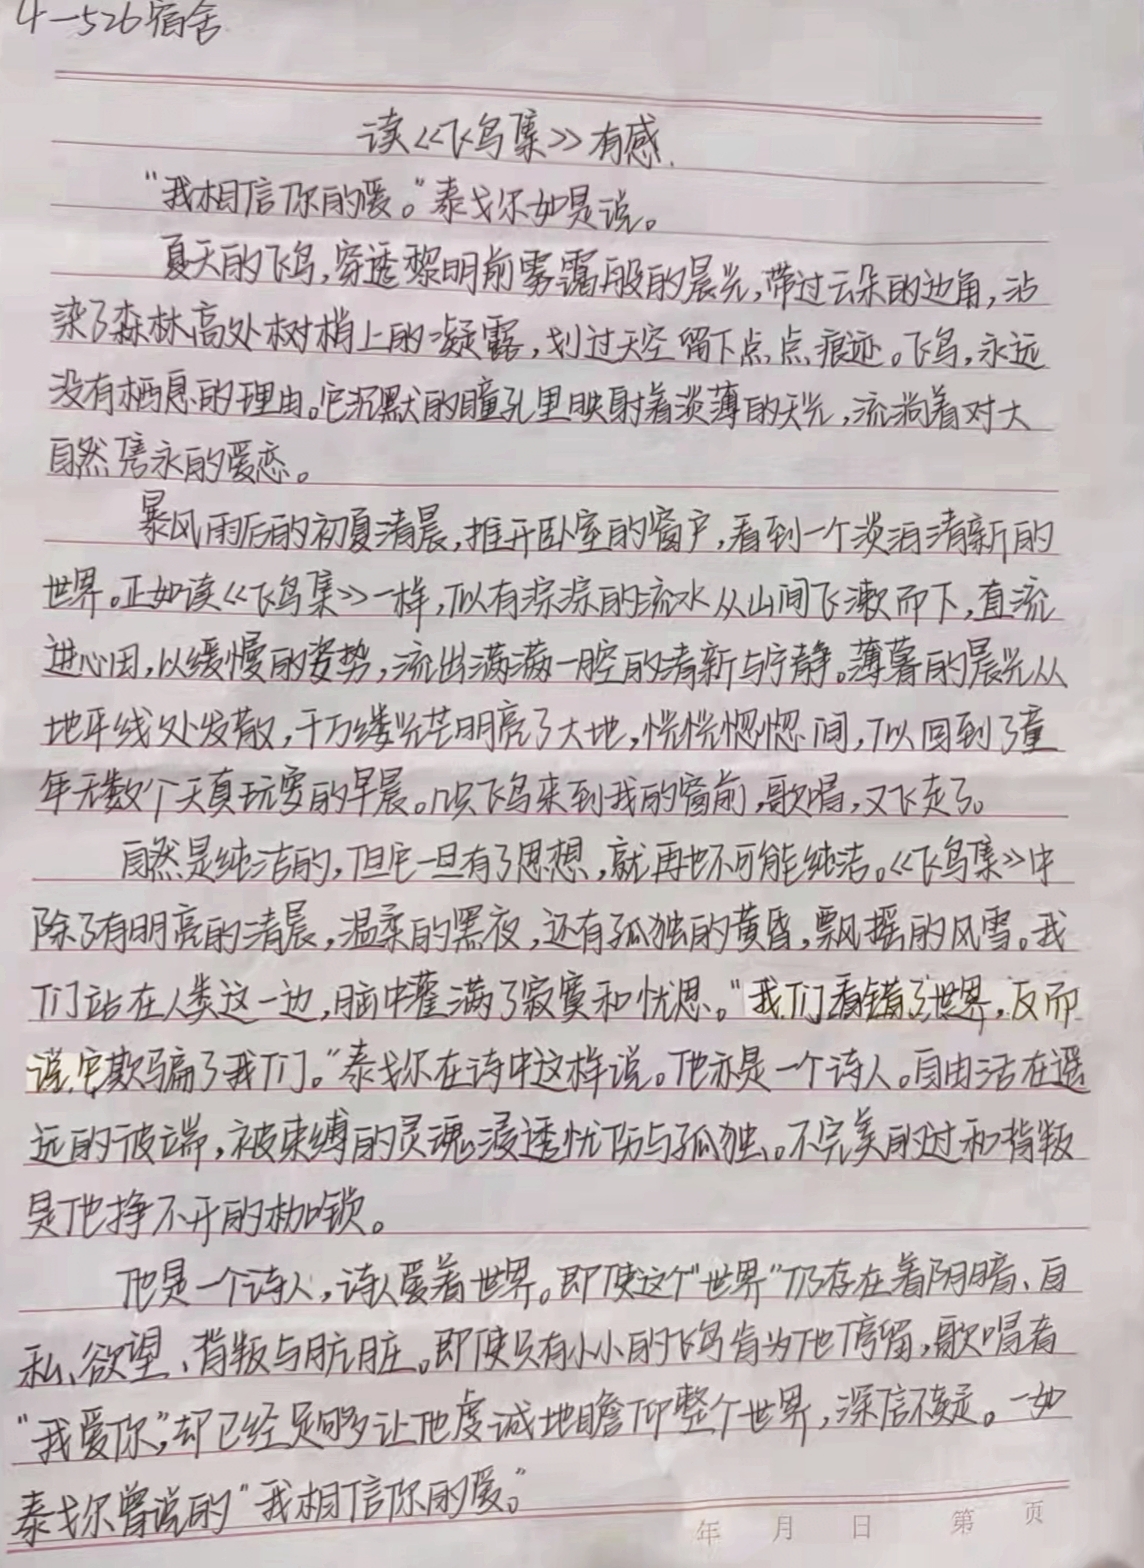 4-526宿舍
读《飞鸟集》有感.
"我相信你的爱。"泰戈尔如是说。
夏天的飞鸟,穿透黎明前雾霭般的晨光,带过云朵的边角,沾
染了森林高处树梢上的凝露,划过天空留下点点痕迹。飞鸟,永远
没有栖息的理由。它沉默的瞳孔里映射着淡薄的天光,流淌着对大
自然隽永的爱恋。
暴风雨后的初夏清晨,推开卧室的窗户,看到一个淡泊清新的
世界。正如读《飞鸟集》一样,似有淙淙的流水从山间飞漱而下,直流
进心田,以缓慢的姿势,流出满满一腔的清新与宁静。薄暮的晨光从
地平线处发散,千万缕光芒明亮了大地,恍恍惚惚间,似回到了童
年无数个天真玩耍的早晨。几只飞鸟来到我的窗前,歌唱,又飞走了。
自然是纯洁的,但它一旦有了思想,就再也不可能纯洁。《飞鸟集》中
除了有明亮的清晨,温柔的黑夜,还有孤独的黄昏,飘摇的风雪。我
们站在人类这一边,脑中灌满了寂寞和忧思。"我们看错了世界,反而
说它欺骗了我们。"泰戈尔在诗中这样说。他亦是一个诗人。自由活在遥
远的彼端,被束缚的灵魂浸透忧伤与孤独。不完美的过和背叛
是他挣不开的枷锁。
他是一个诗人,诗人爱着世界。即使这个"世界"仍存在着阴暗、自
私、欲望、背叛与肮脏。即使只有小小的飞鸟肯为他停留,歌唱着
"我爱你",却已经足够让他虔诚地瞻仰整个世界,深信不疑。一如
泰戈尔曾说的"我相信你的爱。"
年 月 日 第 页